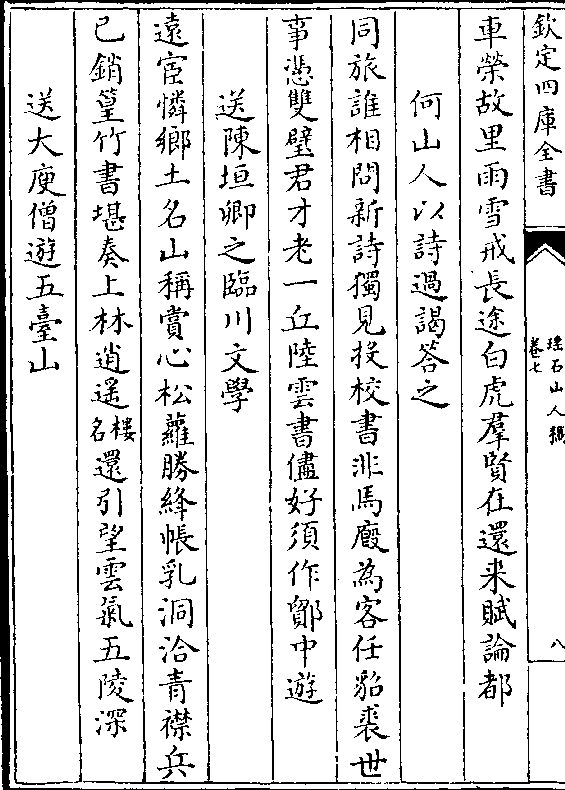 欽定四庫全書
瑤石山人稿
卷七
八
車榮故里雨雪戒長途白虎羣賢在還来賦論都
何山人以詩過謁答之
同旅誰相問新詩獨見投校書非馬廐為客任貂裘世
事憑雙璧君才老一丘陸雲書儘好須作鄴中遊
送陳垣卿之臨川文學
遠宦憐鄉土名山稱賞心松蘿勝絳帳乳洞洽青襟兵
已銷篁竹書堪奏上林逍遥樓名還引望雲氣五陵深
送大庾僧遊五臺山